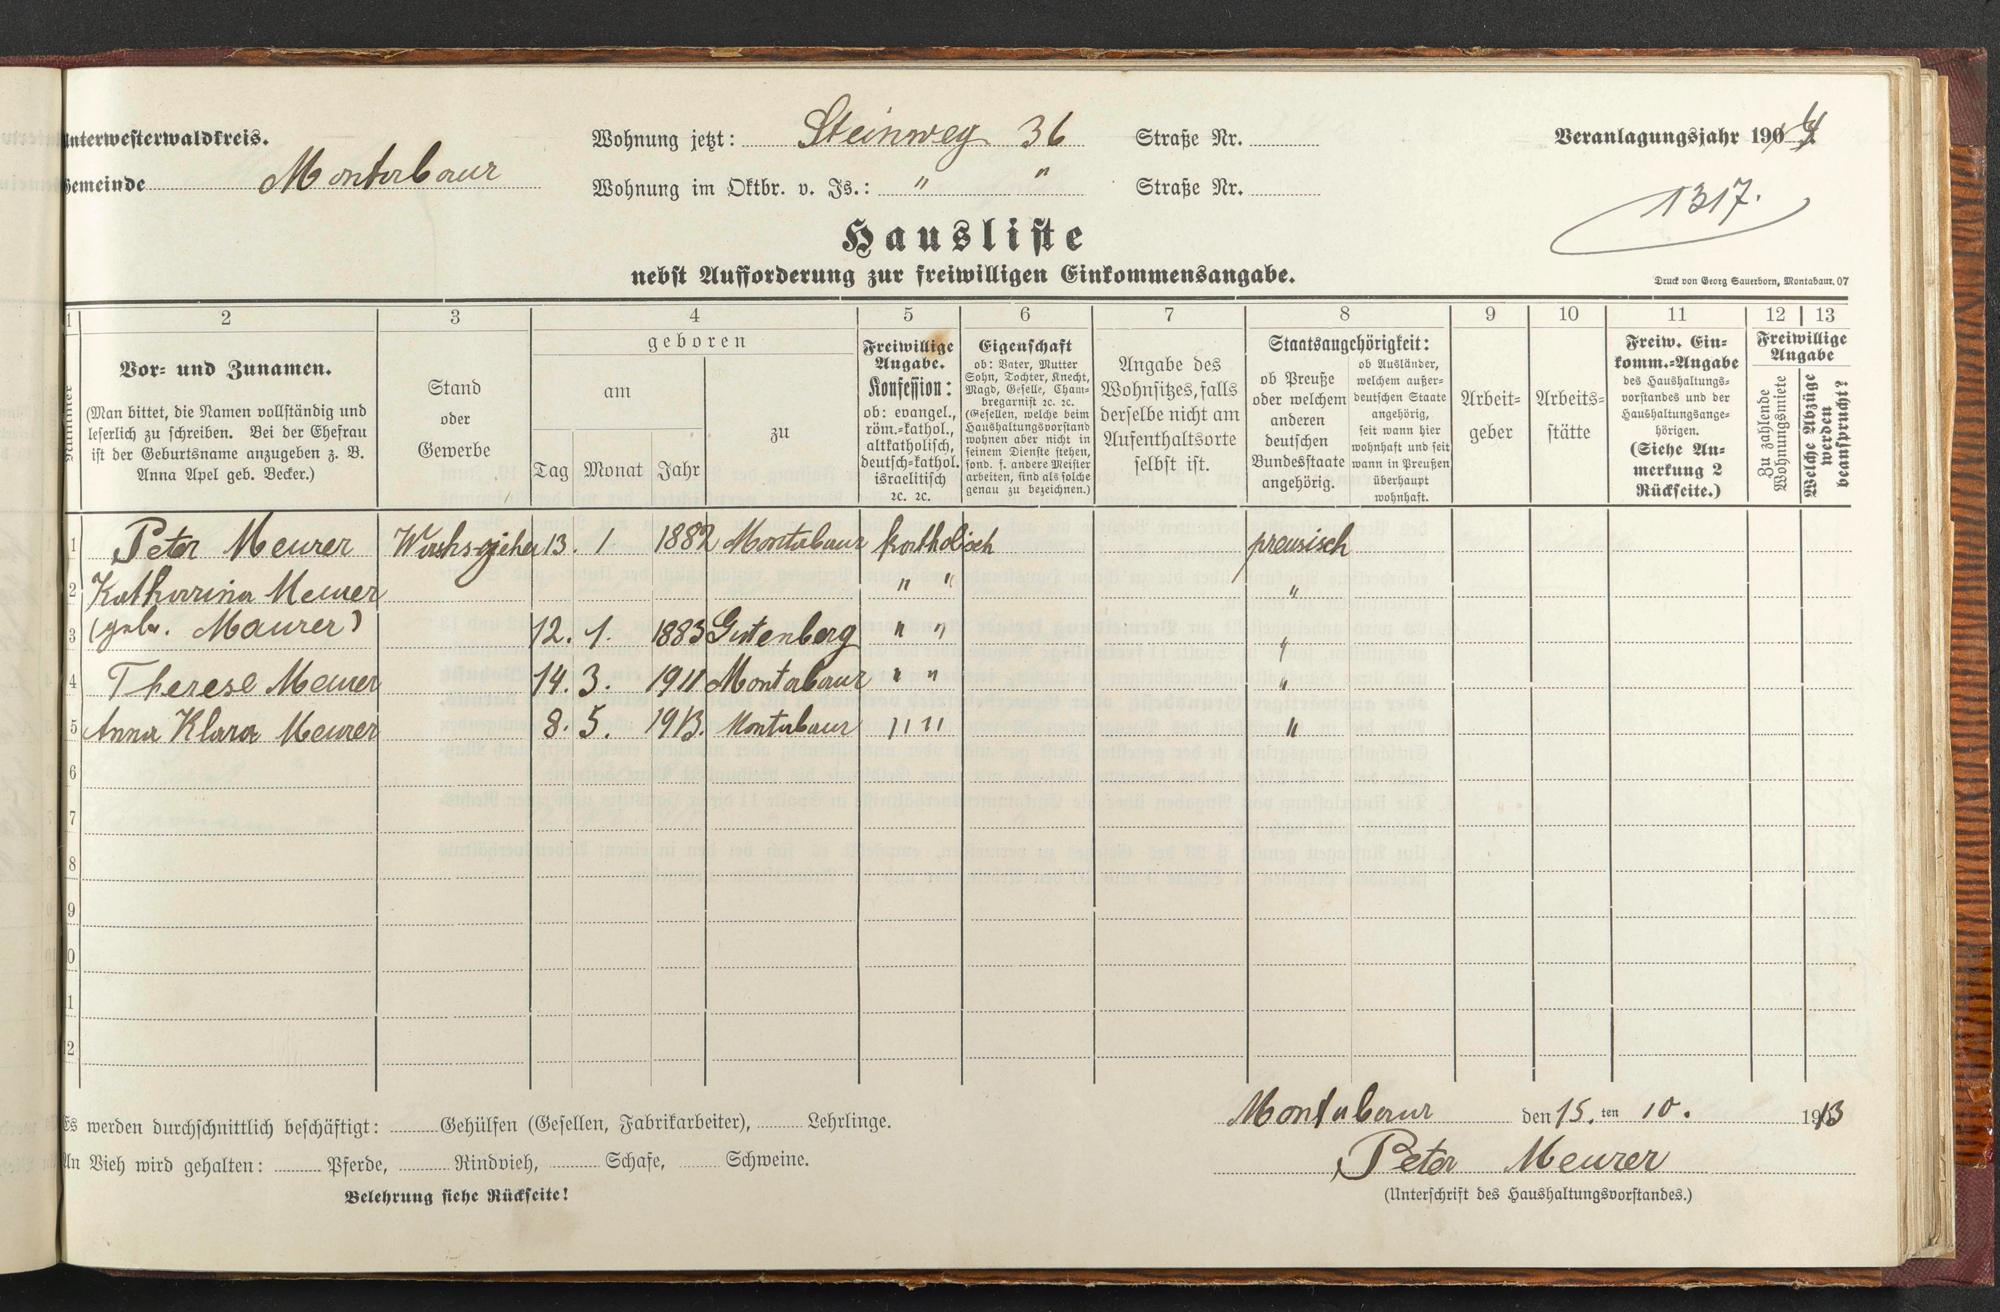 Unterwesterwaldkreis.
Gemeinde Montabaur
Wohnung jetzt: Steinweg 36 Straße Nr.
Wohnung im Oktbr. v. Js.: " " Straße Nr.
Veranlagungsjahr 1904
1317.
Hausliste
nebst Aufforderung zur freiwilligen Einkommensangabe.
Druck von Georg Sauerborn, Montabaur. 07
1 2 3 4 5 6 7 8 9 10 11 12 13
Nummer
Vor- und Zunamen.
(Man bittet, die Namen vollständig und
leserlich zu schreiben. Bei der Ehefrau
ist der Geburtsname anzugeben z. B.
Anna Apel geb. Becker.)
Stand
oder
Gewerbe
geboren
am
Tag Monat Jahr
zu
Freiwillige
Angabe.
Konfession:
ob: evangel.,
röm.-kathol.,
altkatholisch,
deutsch-kathol.
israelitisch
ꝛc. ꝛc.
Eigenschaft
ob: Vater, Mutter
Sohn, Tochter, Knecht,
Magd, Geselle, Cham-
bregarnist ꝛc. ꝛc.
(Gesellen, welche beim
Haushaltungsvorstand
wohnen aber nicht in
seinem Dienste stehen,
sond. f. andere Meister
arbeiten, sind als solche
genau zu bezeichnen.)
Angabe des
Wohnsitzes, falls
derselbe nicht am
Aufenthaltsorte
selbst ist.
Staatsangehörigkeit:
ob Preuße
oder welchem
anderen
deutschen
Bundesstaate
angehörig.
ob Ausländer,
welchem außer-
deutschen Staate
angehörig,
seit wann hier
wohnhaft und seit
wann in Preußen
überhaupt
wohnhaft.
Arbeit-
geber
Arbeits-
stätte
Freiw. Ein-
komm.-Angabe
des Haushaltungs-
vorstandes und der
Haushaltungsange-
hörigen.
(Siehe An-
merkung 2
Rückseite.)
Freiwillige
Angabe
Zu zahlende
Wohnungsmiete
Welche Abzüge
werden
beansprucht?
1 Peter Meurer Wachszieher 13. 1 1882 Montabaur kartholisch preusisch
2 Katharina Meurer " " "
3 (geb. Maurer) 12. 1. 1883 Gutenberg " " "
4 Therese Meurer 14. 3. 1911 Montabaur " " "
5 Anna Klara Meurer 8. 5. 1913. Montabaur " " "
6
7
8
9
10
11
12
Es werden durchschnittlich beschäftigt: Gehülfen (Gesellen, Fabrikarbeiter), Lehrlinge.
An Vieh wird gehalten: Pferde, Rindvieh, Schafe, Schweine.
Belehrung siehe Rückseite!
Montabaur den 15. ten 10. 1913
Peter Meurer
(Unterschrift des Haushaltungsvorstandes.)